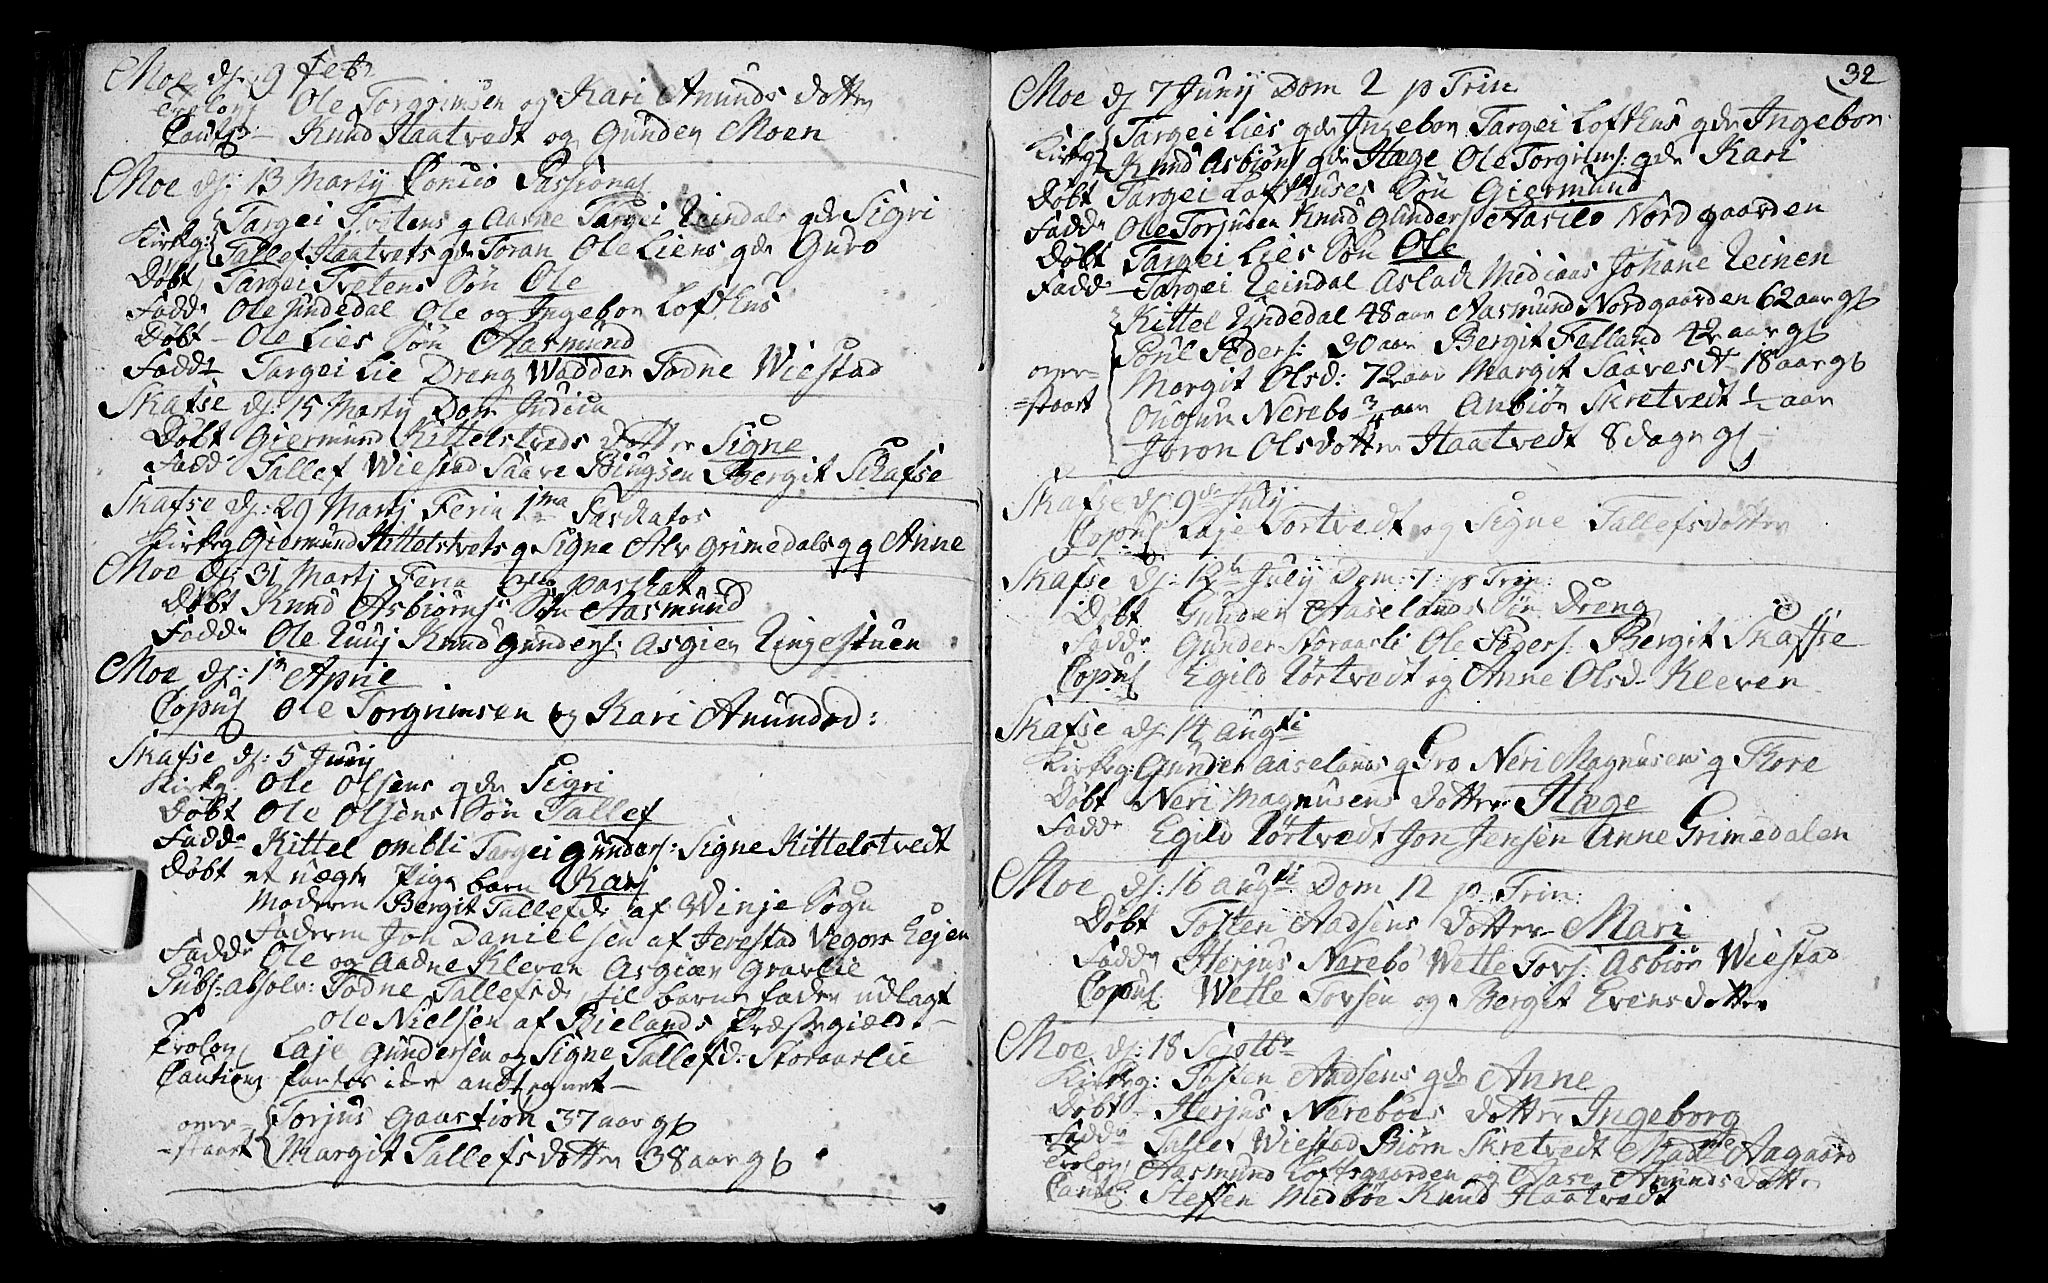 Moe dj: 9 Feb:
Trolov Ole Torgrimsen og Kari Anunds dotter
Caut: Knud Haatvedt og Gunden Moen
Moe dj: 13 Martij Concio Passional
Kirkg: Targei Tvetens q Aasne Targei Reindals qde Sigri
Tallef Haatvets qde Toran Ole Liens qde Guro
Døbt Targei Tvetens Søn Ole
Fadde Ole Undedal Ole og Ingebor Lofthus
Døbt Ole Lies Søn Aasmund
Fadde Targei Lie Dreng Wadden Todne Wiestad
Skafse dj: 15 Martij Dom Judica
Døbt Giermund Kittelstveds Dotter Signe
Fadde Tallef Wiestad Saave Bergit Schafse
Skafse dj: 29 Martj Feria 1ma Paschatos
Kirkeg Giermund Kittelstvets q Signe Alv Grimedals qq Anne
Moe dj: 31 Martj Feria 3tia paschat
Døbt Knud Asbiørns: Søn Aasmund
Fadde Ole Knud Gunders: Asgier Ringestuen
Moe dj: 1 Aprie
Copul Ole Torgrimsen og Kari Anundsd:
Skafse dj: 5 Junij
Kirkg Ole Olsens qde Sigri
Døbt Ole Olsens Søn Tallef
Fadde Kittel Ombli Targei Gunders: Signe Kittelstvedt
Døbt et uægte Pige barn Kari
Moderen Bergit Tallefsd: af Winje Sogn
Faderen Jon Danielsen af Jerestad Vegors Lejen
Fadde Ole og Aadne Kleven Asgier Gravlie
Publ: absolv: Todne Tallefsd: til barne fader udlagt
Ole Nielsen af Bielands Præstegield
Trolov Laje Gundersen og Signe Tallefsd: Storaarlie
Cautions
over= Torjus Gaastion 37 aar gl
=staart Margit Tallefsdotter 38 aar gl
32
Moe dj 7 Junij Dom 2 p Trin
Kirkg Targei Lies qde Ingebor Targei Lofthus qde Ingebor
Knud Asbiøns qde Hæge Ole Torgrims: qde Kari
Døbt Targei Lofthuses Søn Giermund
Fadde Ole Torjusen Knud Gunders Aasild Nordgaarden
Døbt Targei Lies Søn Ole
Fadde Targei Reindal Aslach Mediaas Johane Reinen
Kittel Undedal 48 aar Aasmund Nordgaarden 62 aar gl
Poul Peders: 30 aar Bergit Felland 42 aar gl
over= Margit Olsd: 72 aar Margit Saavesdt 18 aar gl
=staart Nerebø aar Anbiør Skretvedt 1/2 aar
Joron Olsdotter Haatvedt 8 dage gl
Skafse dj 9de Julij
Copul Laje Tortvedt og Signe Tallefsdotter
Skafse dj: 12te Julij Dom: 7 p Trin:
Døbt Gunder Aaselands Søn Dreng
Fadde Gunder Storaarli Ole Peders: Bergit Skafse
Copul Egild Tortvedt og Anne Olsd: Kleven
Skafse dj: 14 augti
Kirkg: Gunder Aaselands q Gro Neri Magnusens q Thore
Døbt Neri Magnusens dotter Hæge
Fadde Egild Tortvedt Jon Jensen Anne Grimedalen
Moe dj: 16 augti Dom 12 p Trin:
Døbt Tosten Aadsens dotter Mari
Fadde Herjus Narebø Wetle Tovs: Asbiør Wiestad
Copul Wetle Tovsen og Bergit Evensdotter
Moe dj: 18
Kirkg: Tosten Aadsens qde Anne
Døbt Herjus Nerebøes dotter Ingeborg
Fadde Tallef Wiestad Biørn Skretvedt Madme Aagaard
Trolov Aasmund Loftsgaarden og Aase Anundsdotter
Caut: Steffen Medbøe Knud Haatvedt